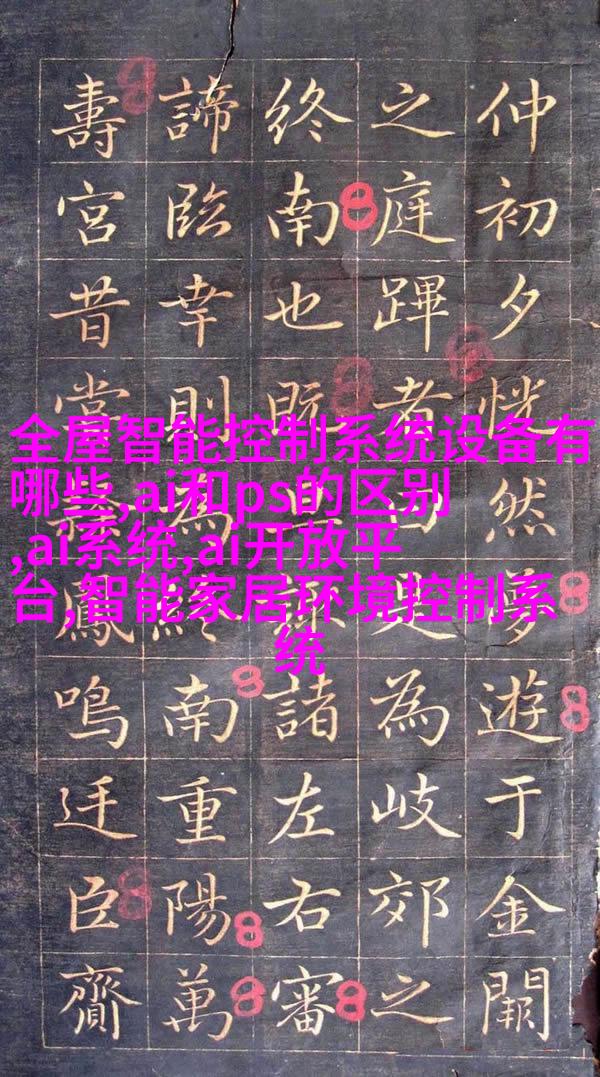 全屋智能控制系统设备有
哪些,ai和ps的区别
,ai系统,ai开放平
台,智能家居环境控制系
统
仲初夕恍然漫遊于金闕
之庭蹕者曰更為岐郊之
終南也既諸左右審
諦臨幸則為終南重陽萬
壽宮昔嘗鳳鳴迁臣齎